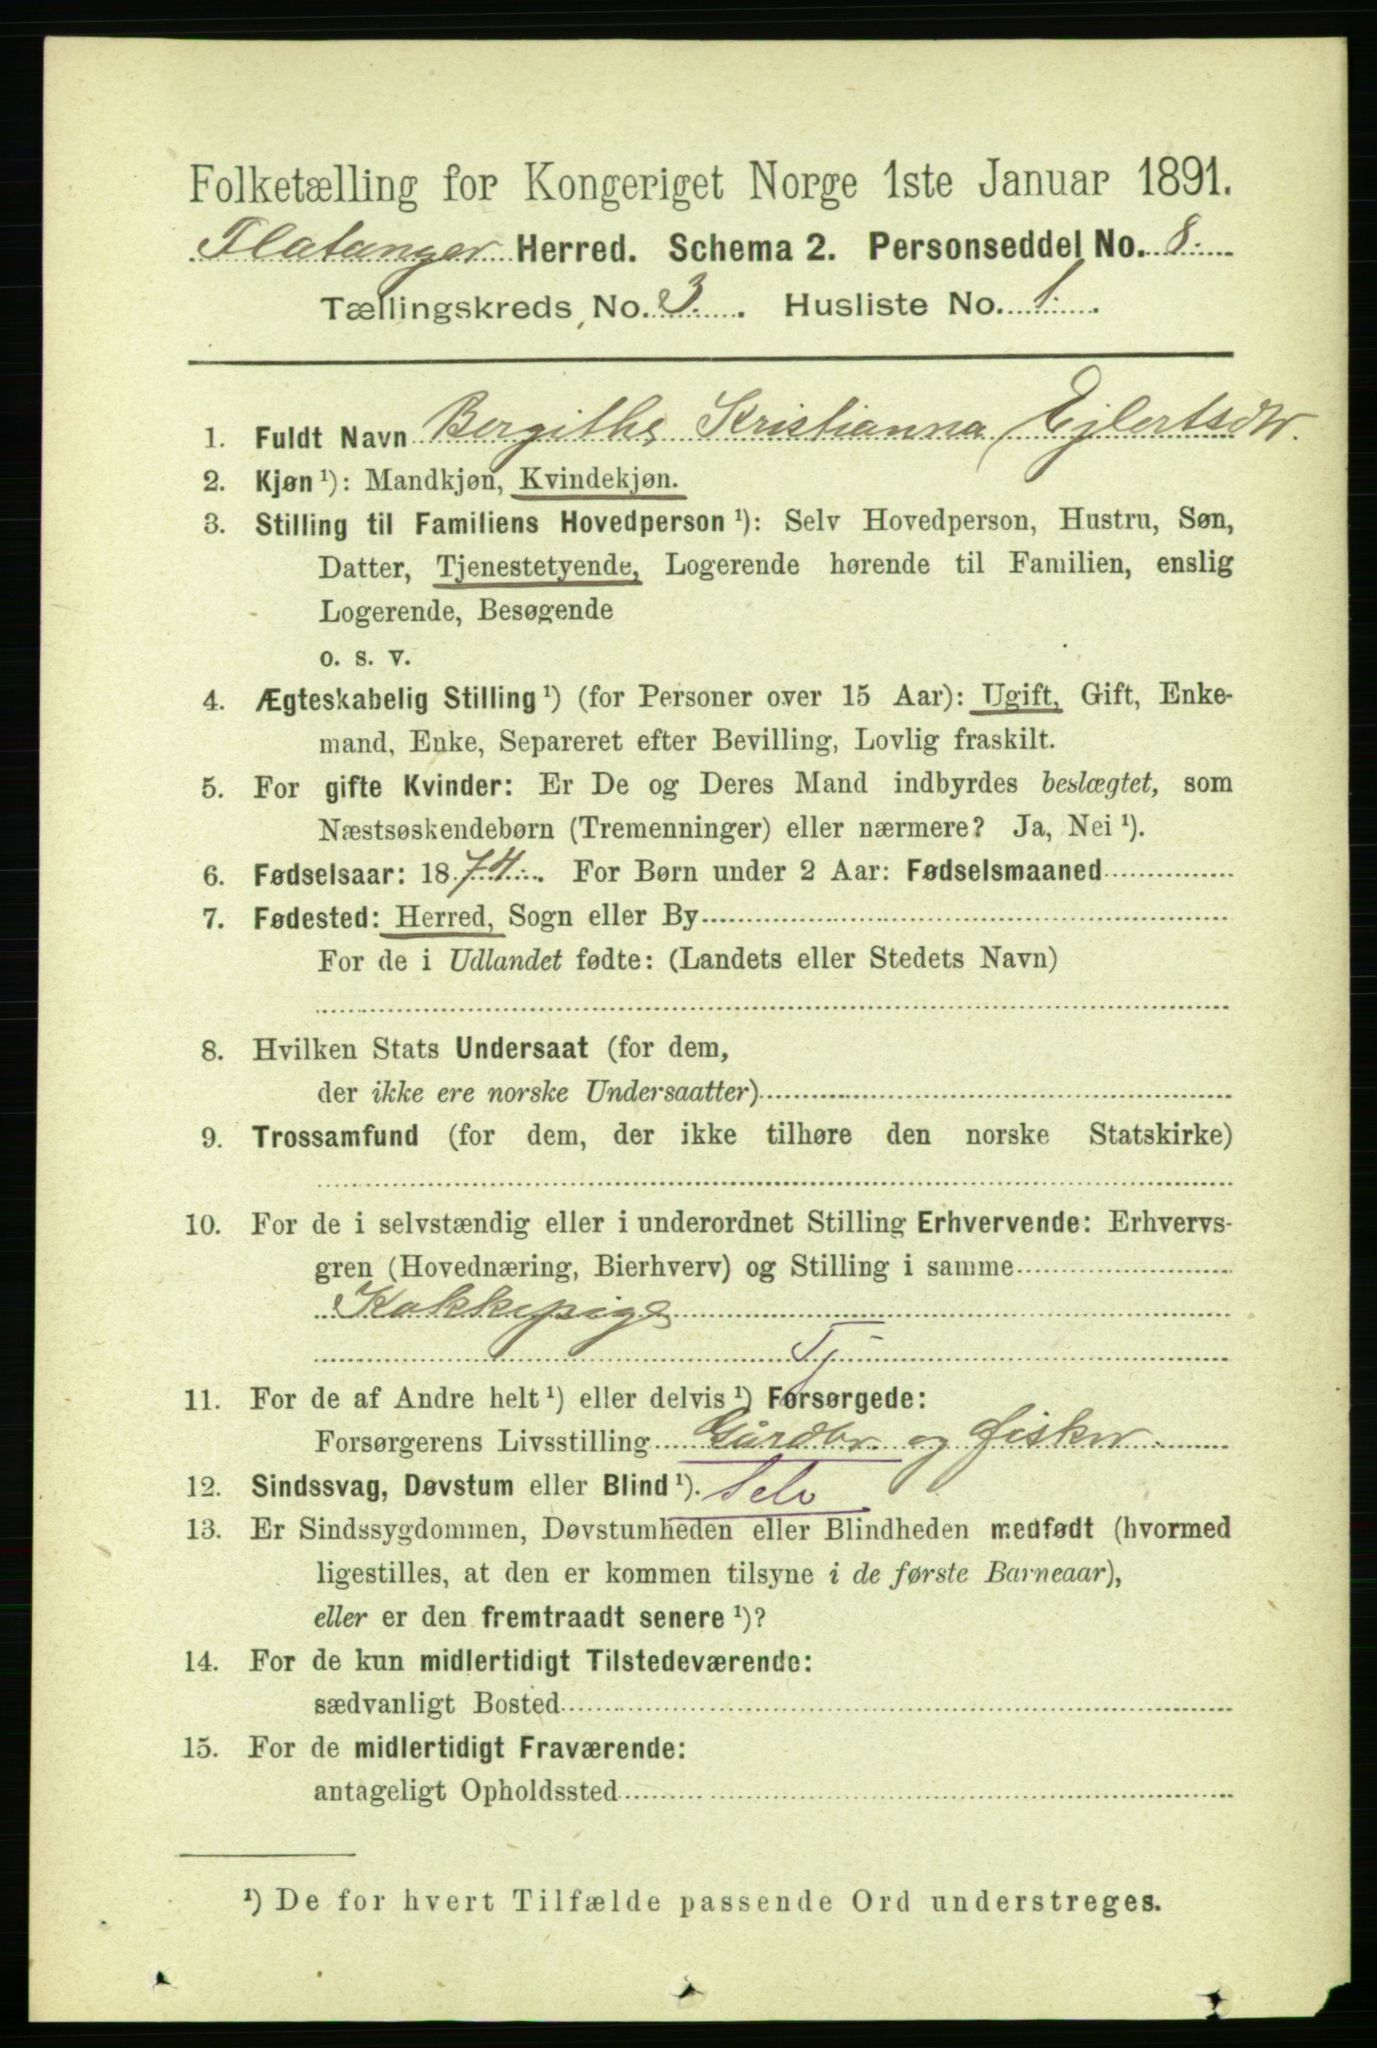 Folketælling for Kongeriget Norge 1ste Januar 1891.
Flatanger Herred. Schema 2. Personseddel No. 8.
Tællingskreds No. 3. Husliste No. 1.
1. Fuldt Navn Bergithe Kristianna Ejlertsdtr.
2. Kjøn ¹): Mandkjøn, Kvindekjøn.
3. Stilling til Familiens Hovedperson ¹): Selv Hovedperson, Hustru, Søn,
Datter, Tjenestetyende, Logerende hørende til Familien, enslig
Logerende, Besøgende
o. s. v.
4. Ægteskabelig Stilling ¹) (for Personer over 15 Aar): Ugift, Gift, Enke-
mand, Enke, Separeret efter Bevilling, Lovlig fraskilt.
5. For gifte Kvinder: Er De og Deres Mand indbyrdes beslægtet, som
Næstsøskendebørn (Tremenninger) eller nærmere? Ja, Nei ¹).
6. Fødselsaar: 1874. For Børn under 2 Aar: Fødselsmaaned
7. Fødested: Herred, Sogn eller By
For de i Udlandet fødte: (Landets eller Stedets Navn)
8. Hvilken Stats Undersaat (for dem,
der ikke ere norske Undersaatter)
9. Trossamfund (for dem, der ikke tilhøre den norske Statskirke)
10. For de i selvstændig eller i underordnet Stilling Erhvervende: Erhvervs-
gren (Hovednæring, Bierhverv) og Stilling i samme
Kokkepige
Tj
11. For de af Andre helt ¹) eller delvis ¹) Forsørgede:
Forsørgerens Livsstilling Gårdbr. og fisker
12. Sindssvag, Døvstum eller Blind ¹). Selv
13. Er Sindssygdommen, Døvstumheden eller Blindheden medfødt (hvormed
ligestilles, at den er kommen tilsyne i de første Barneaar),
eller er den fremtraadt senere ¹)?
14. For de kun midlertidigt Tilstedeværende:
sædvanligt Bosted
15. For de midlertidigt Fraværende:
antageligt Opholdssted
¹) De for hvert Tilfælde passende Ord understreges.